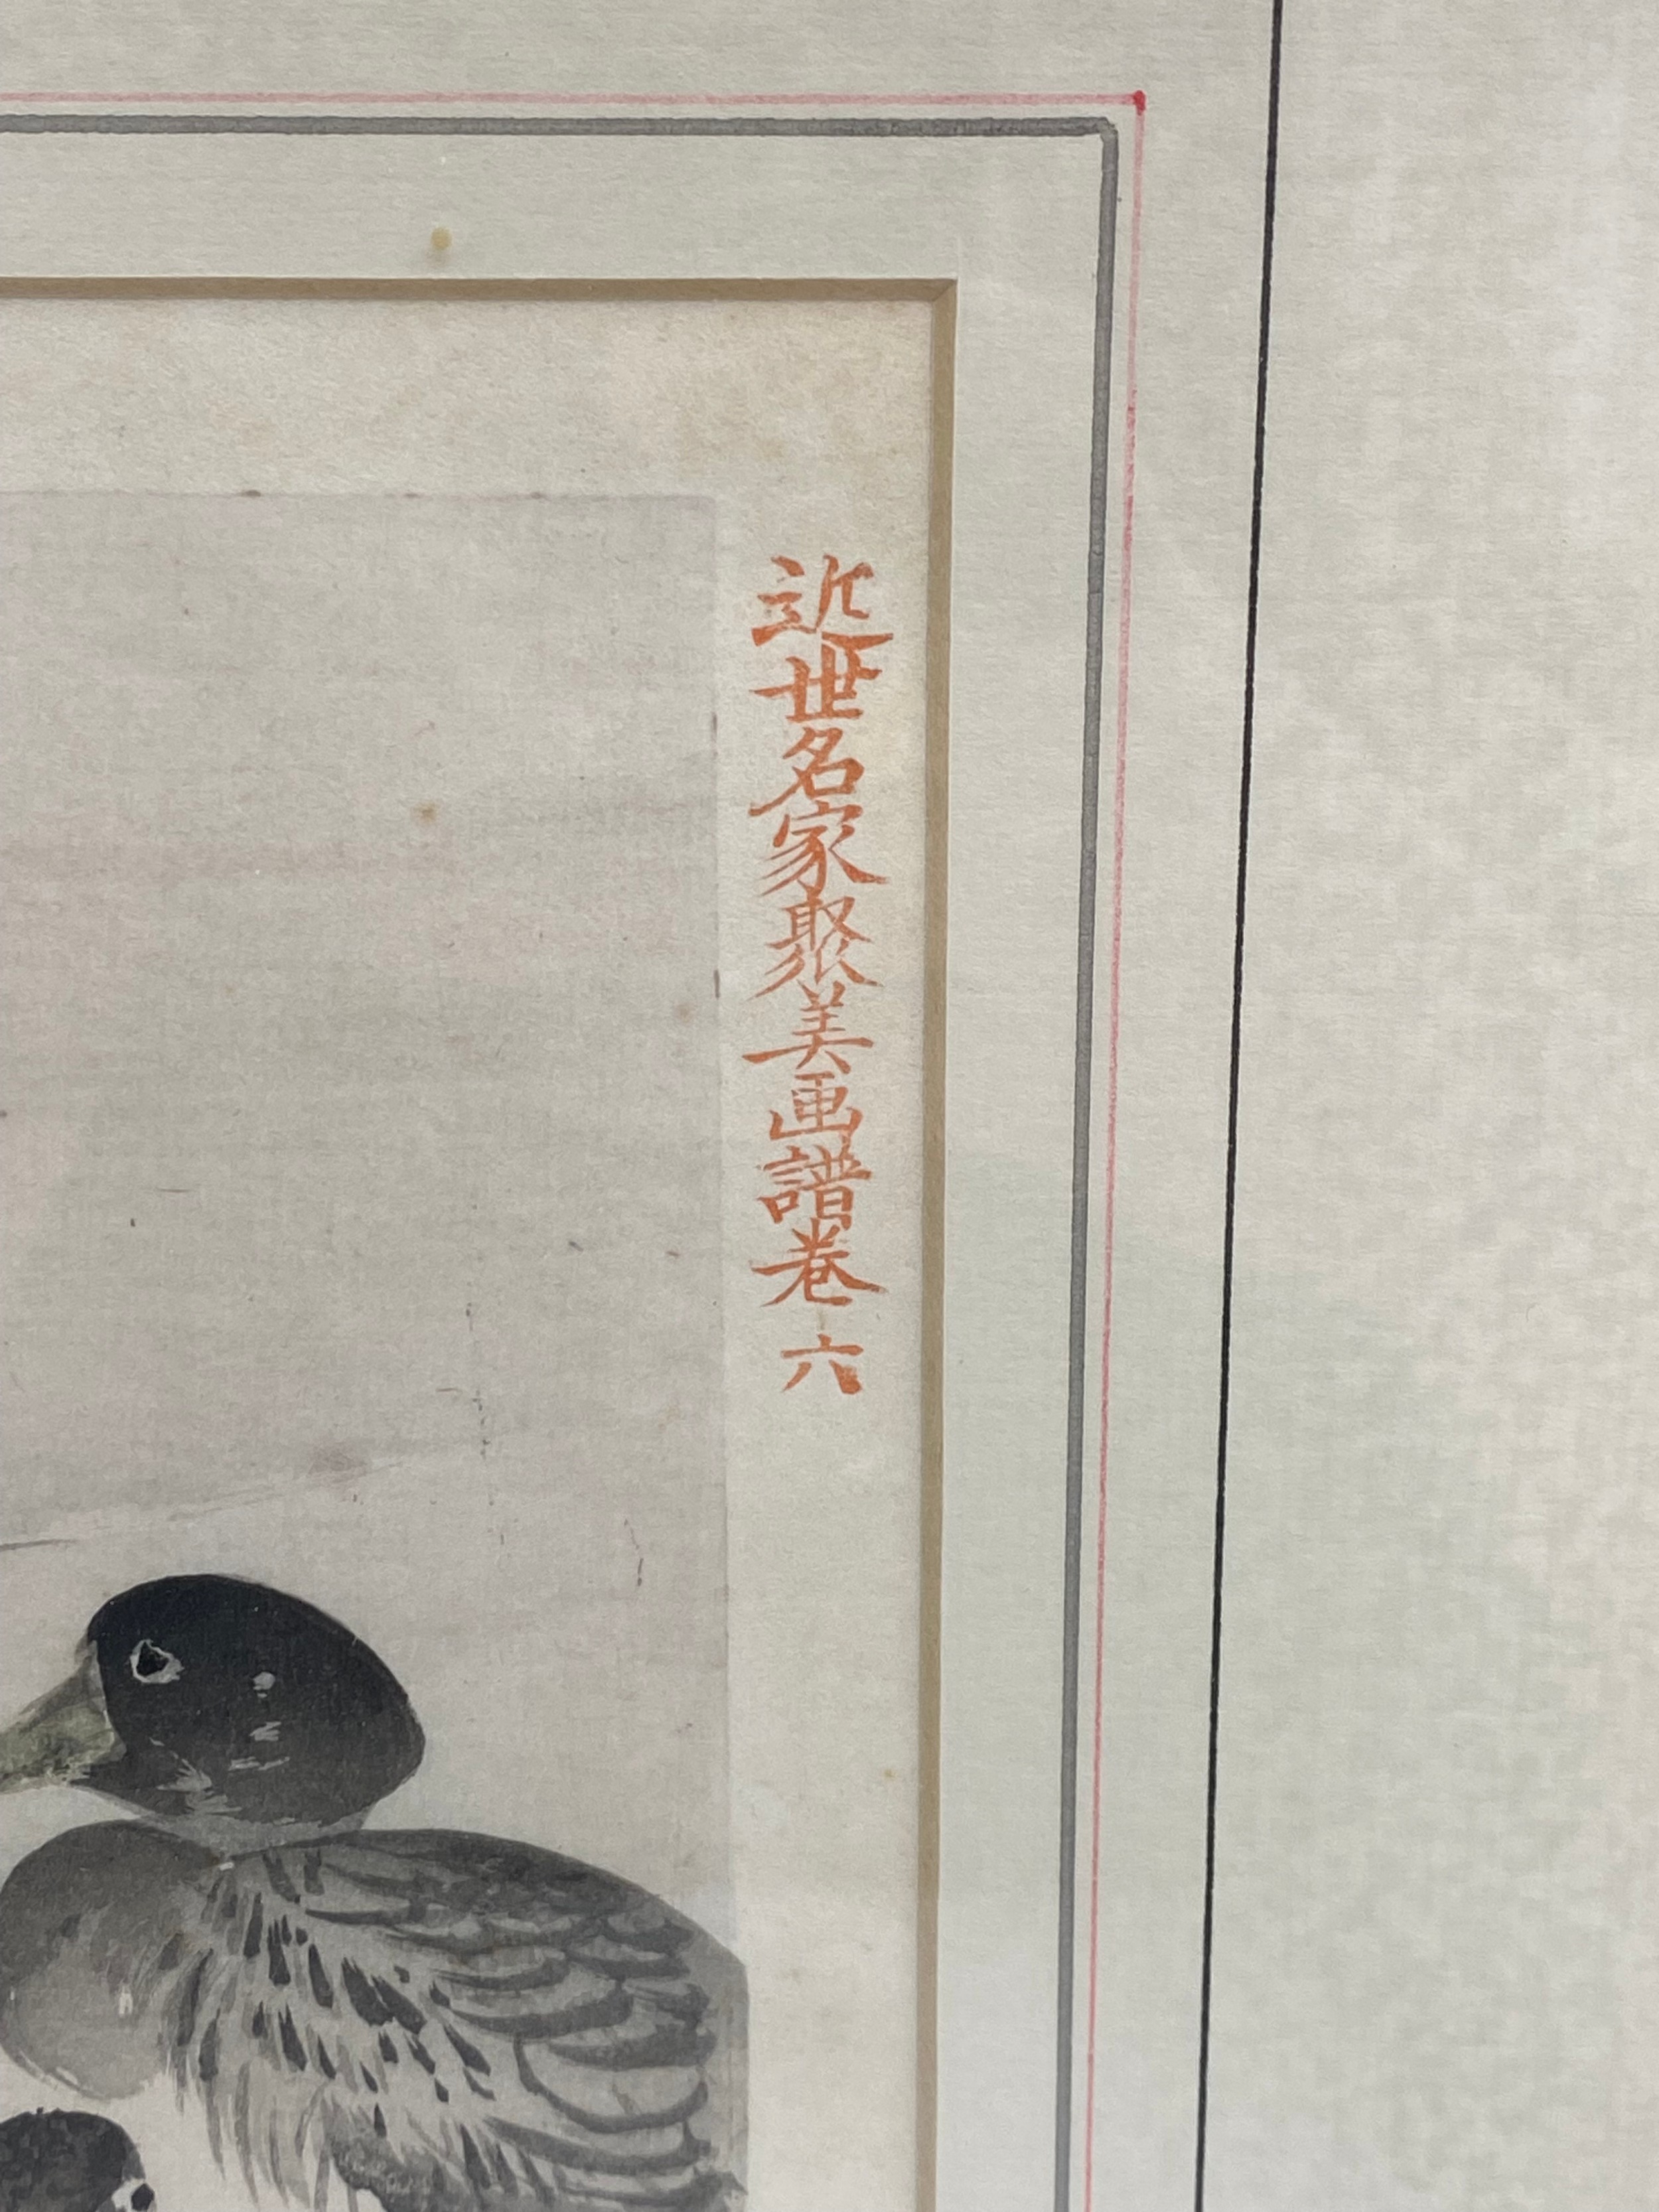 近世名家聚美画譜卷六